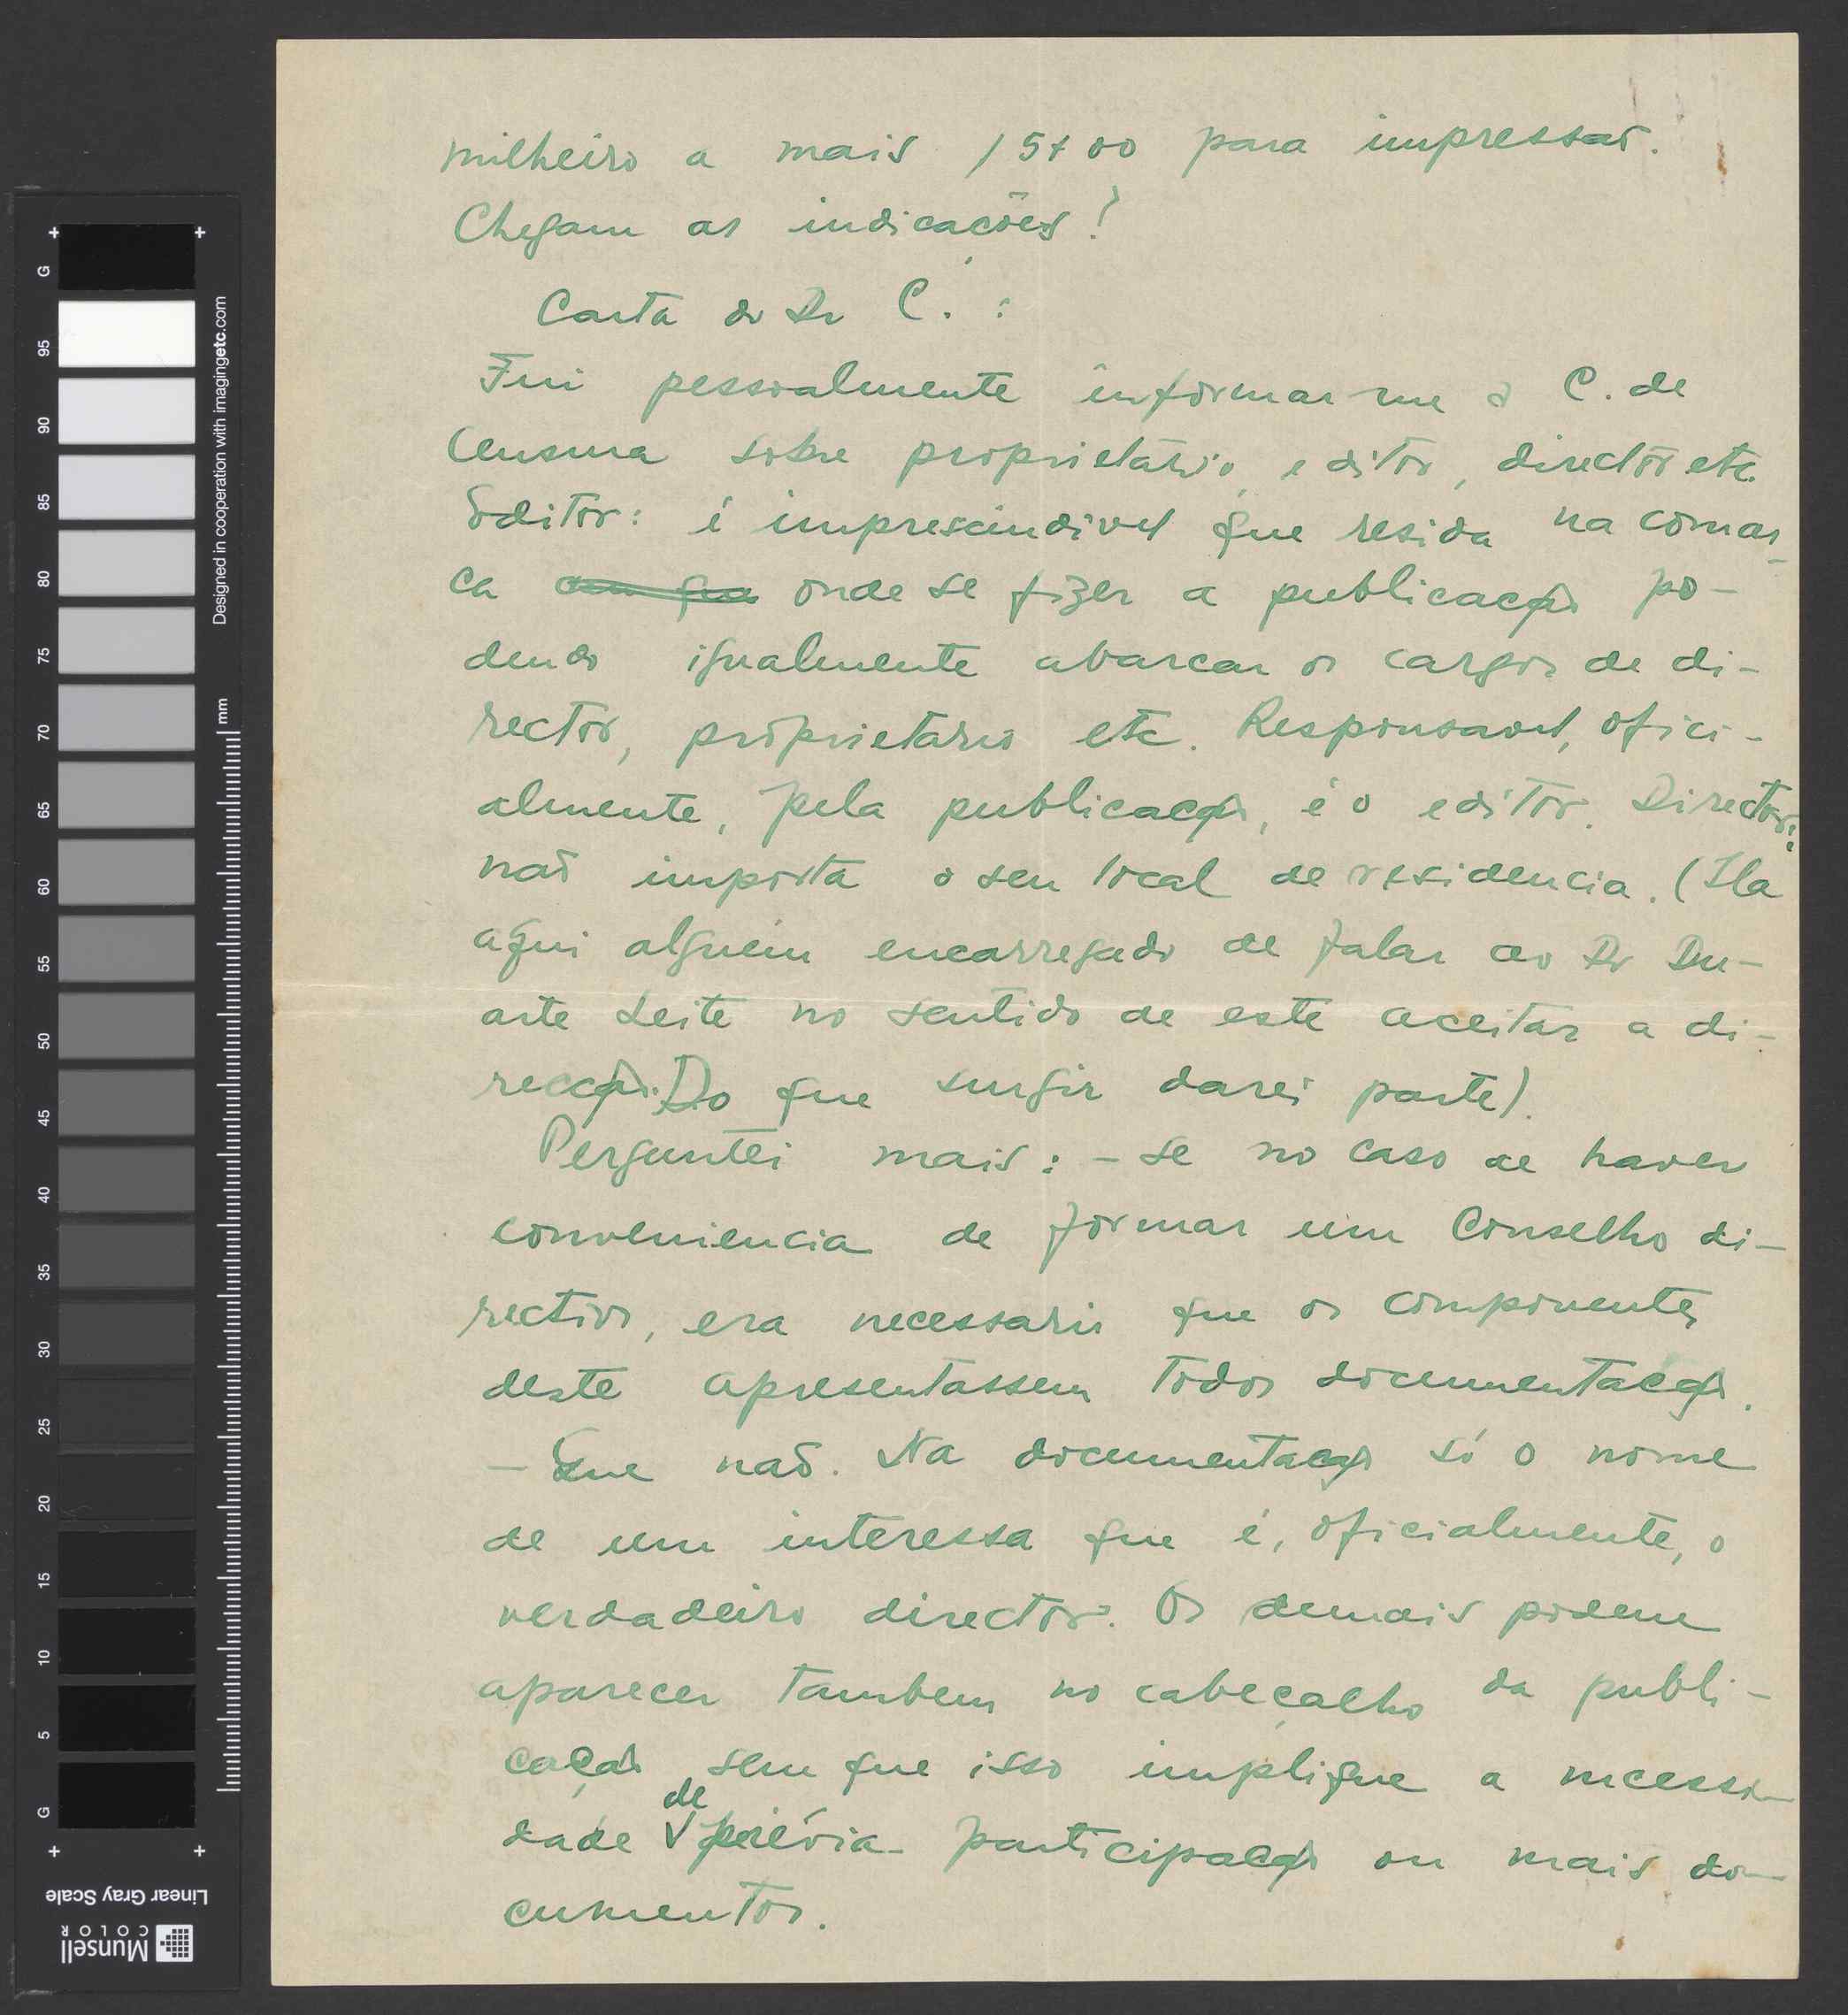 milheiro a mais 15$00 para impressaõ.
Chegam as indicações?
Carta do Dr C. :
Fui pessoalmente informar-me à C. de
Censura sobre proprietário, editor, director etc.
Editor: é imprescindivel que resida na comar-
ca onde se fizer a publicação po-
dendo igualmente abarcar os cargos de di-
rector, proprietario etc. Responsavel, ofici-
almente, pela publicação, é o editor. Director:
naõ importa o seu local de residencia. (Ha
aqui alguém encarregado de falar ao Dr Du-
arte Leite no sentido de este aceitar a di-
recção. Do que surgir darei parte).
Perguntei mais: - se no caso de haver
conveniencia de formar um Conselho di-
rectivo, era necessario que os componentes
deste apresentassem todos documentação.
- Que naõ. Na documentação só o nome
de um interessa que é, oficialmente, o
verdadeiro director. Os demais podem
aparecer tambem no cabeçalho da publi-
cação sem que isso implique a necessi-
dade de prévia participação ou mais do-
cumentos.
G
95
90
85
80
75
70
65
60
55
50
45
40
35
30
25
20
15
10
5
G
mm
Designed in cooperation with imagingetc.com
Linear Gray Scale
Munsell
COLOR